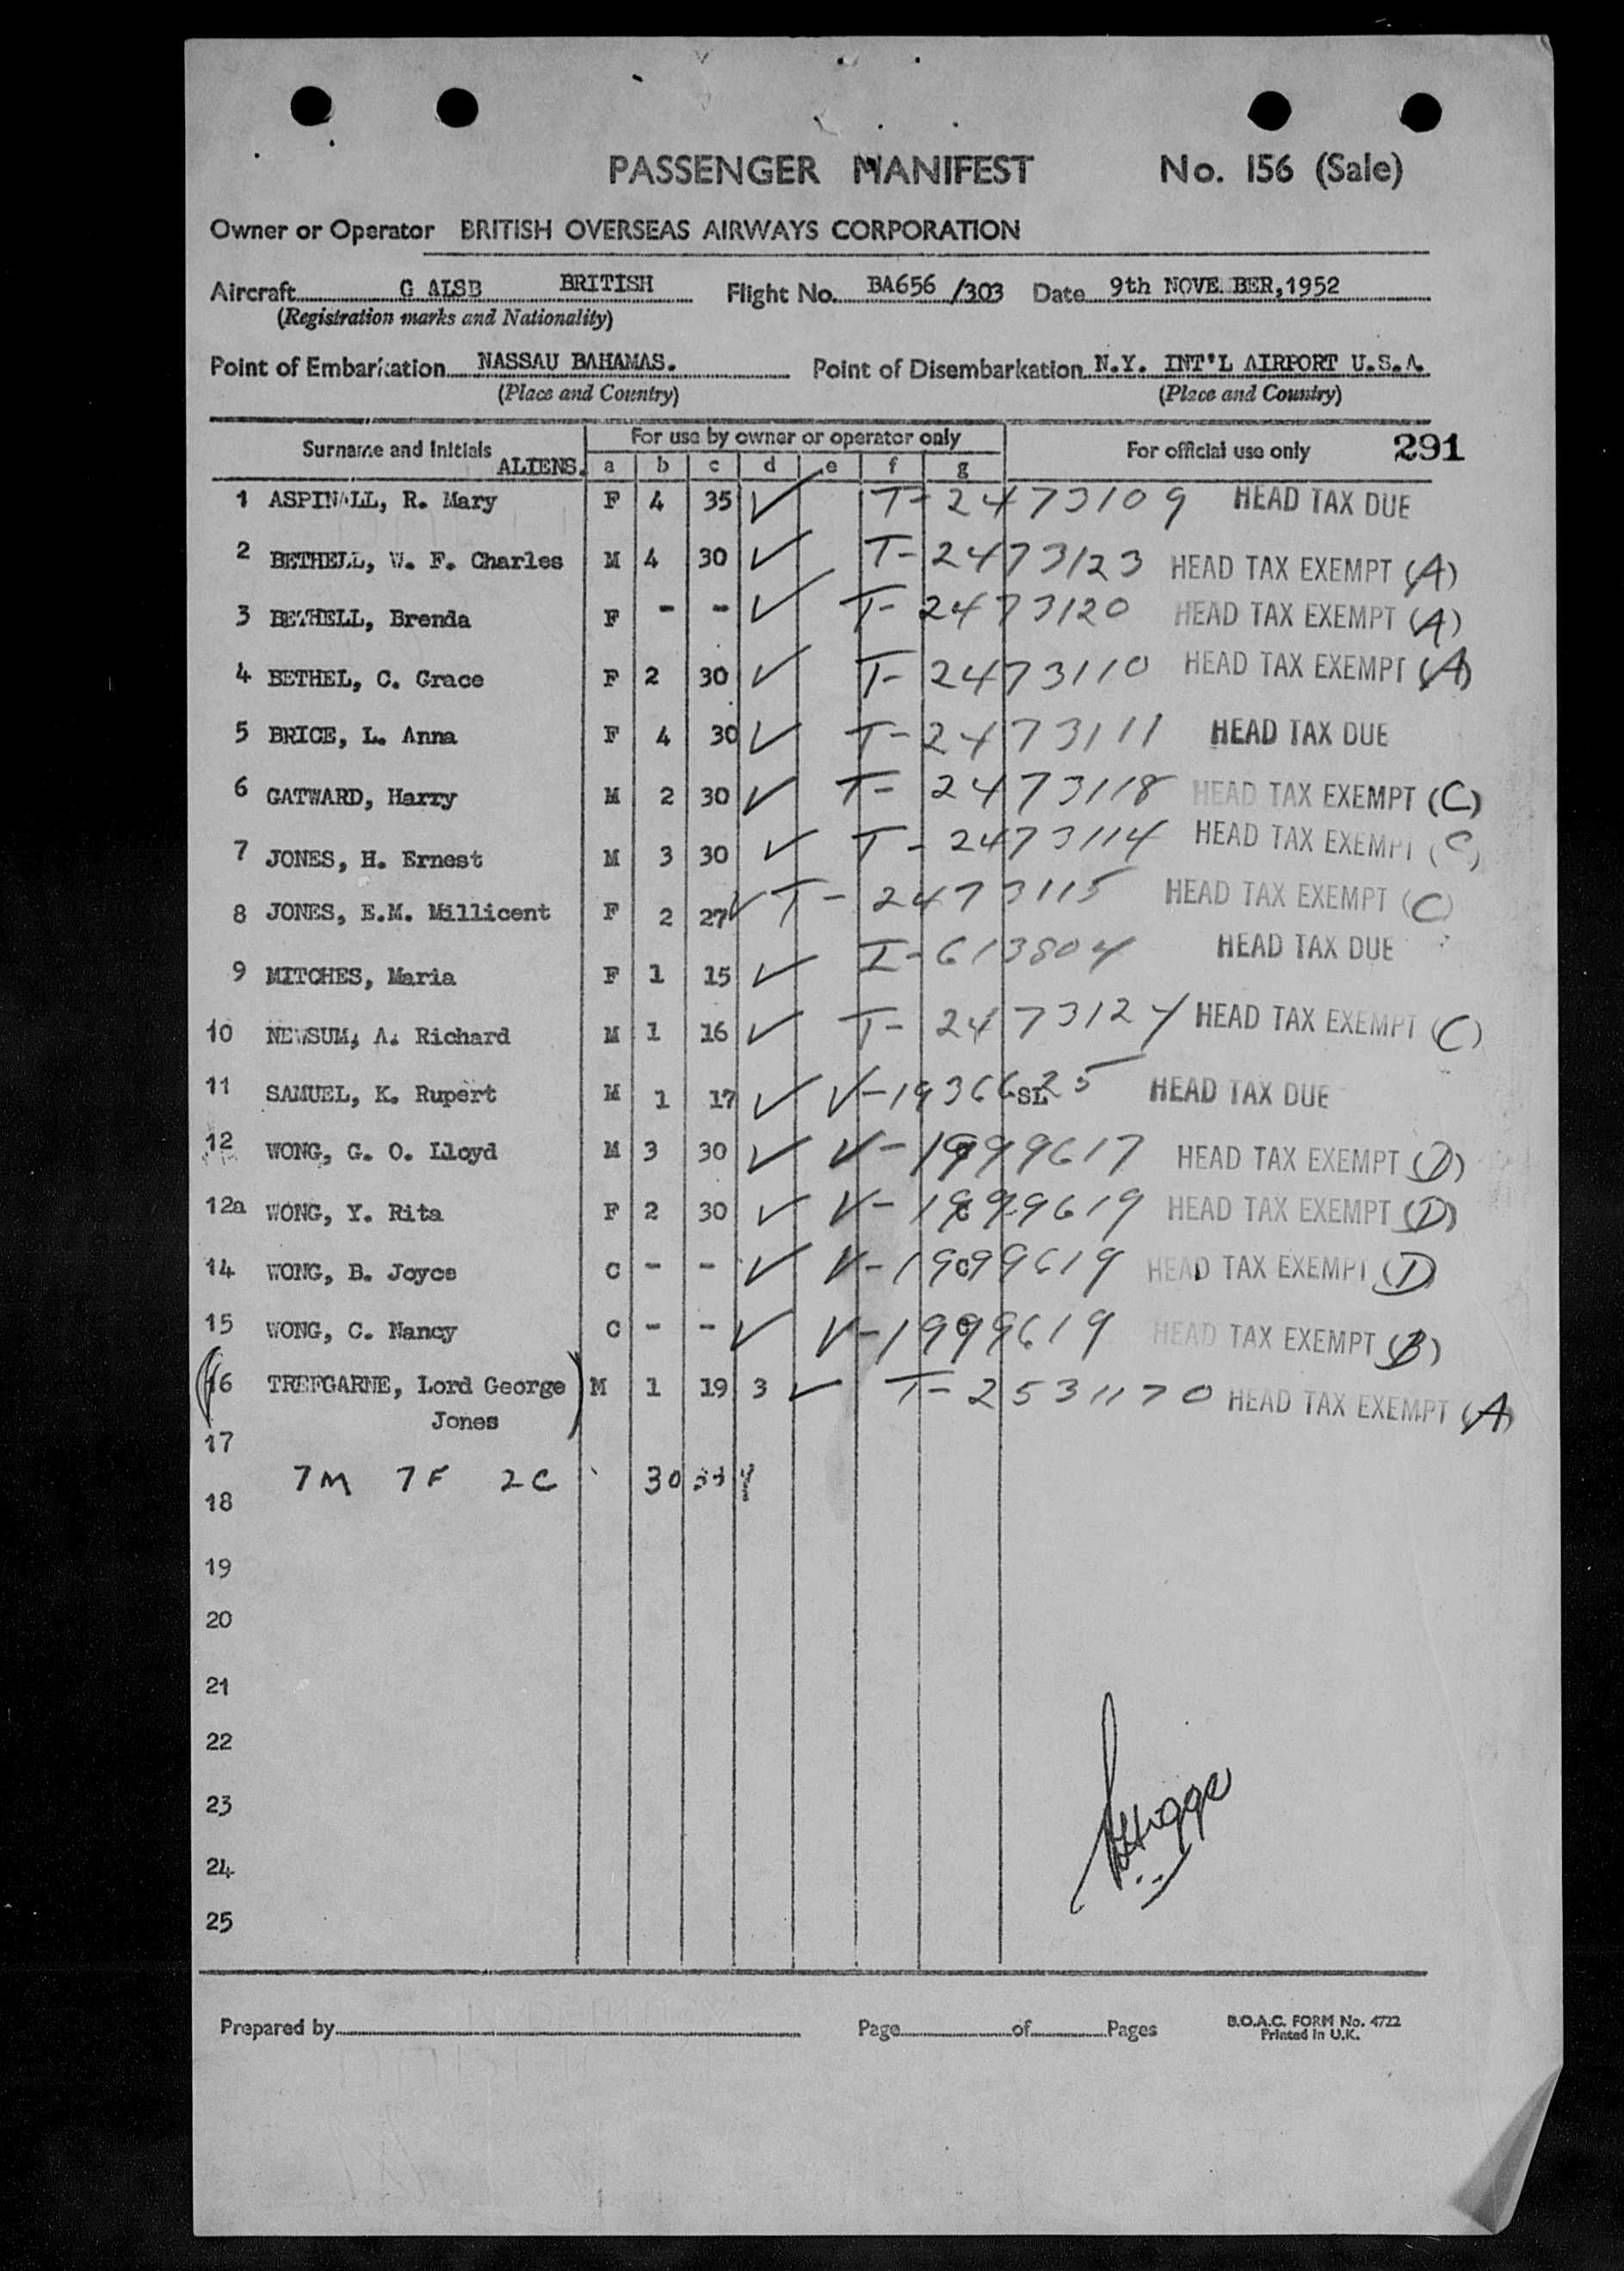 PASSENGER MANIFEST No. 156 (Sale)
Owner or Operator BRITISH OVERSEAS AIRWAYS CORPORATION
Aircraft G ALSB BRITISH Flight No. BA656 /303 Date 9th NOVE BER, 1952
(Registration marks and Nationality)
Point of Embarkation NASSAU BAHAMAS. Point of Disembarkation N.Y. INT'L AIRPORT U.S.A.
(Place and Country) (Place and Country)
Surname and Initials ALIENS. For use by owner or operator only For official use only 291
a b c d e f g
1 ASPINALL, R. Mary F 4 35 ✓ T-2473109 HEAD TAX DUE
2 BETHELL, W. F. Charles M 4 30 ✓ T-2473123 HEAD TAX EXEMPT (A)
3 BETHELL, Brenda F - - ✓ T-2473120 HEAD TAX EXEMPT (A)
4 BETHEL, C. Grace F 2 30 ✓ T-2473110 HEAD TAX EXEMPT (A)
5 BRICE, L. Anna F 4 30 ✓ T-2473111 HEAD TAX DUE
6 GATWARD, Harry M 2 30 ✓ T-2473118 HEAD TAX EXEMPT (C)
7 JONES, H. Ernest M 3 30 ✓ T-2473114 HEAD TAX EXEMPT (C)
8 JONES, E.M. Millicent F 2 27 ✓ T-2473115 HEAD TAX EXEMPT (C)
9 MITCHES, Maria F 1 15 ✓ I-613804 HEAD TAX DUE
10 NEWSUM, A. Richard M 1 16 ✓ T-2473124 HEAD TAX EXEMPT (C)
11 SAMUEL, K. Rupert M 1 17 ✓ V-1936625 SL HEAD TAX DUE
12 WONG, G. O. Lloyd M 3 30 ✓ V-1999617 HEAD TAX EXEMPT (D)
12a WONG, Y. Rita F 2 30 ✓ V-1999619 HEAD TAX EXEMPT (D)
14 WONG, B. Joyce C - - ✓ V-1999619 HEAD TAX EXEMPT (D)
15 WONG, C. Nancy C - - ✓ V-1999619 HEAD TAX EXEMPT (B)
(16 TREFGARNE, Lord George) M 1 19 3 ✓ T-2531170 HEAD TAX EXEMPT (A)
Jones
17
7M 7F 2C 30
18
19
20
21
22
23
24
25
Prepared by Page of Pages B.O.A.C. FORM No. 4722
Printed in U.K.